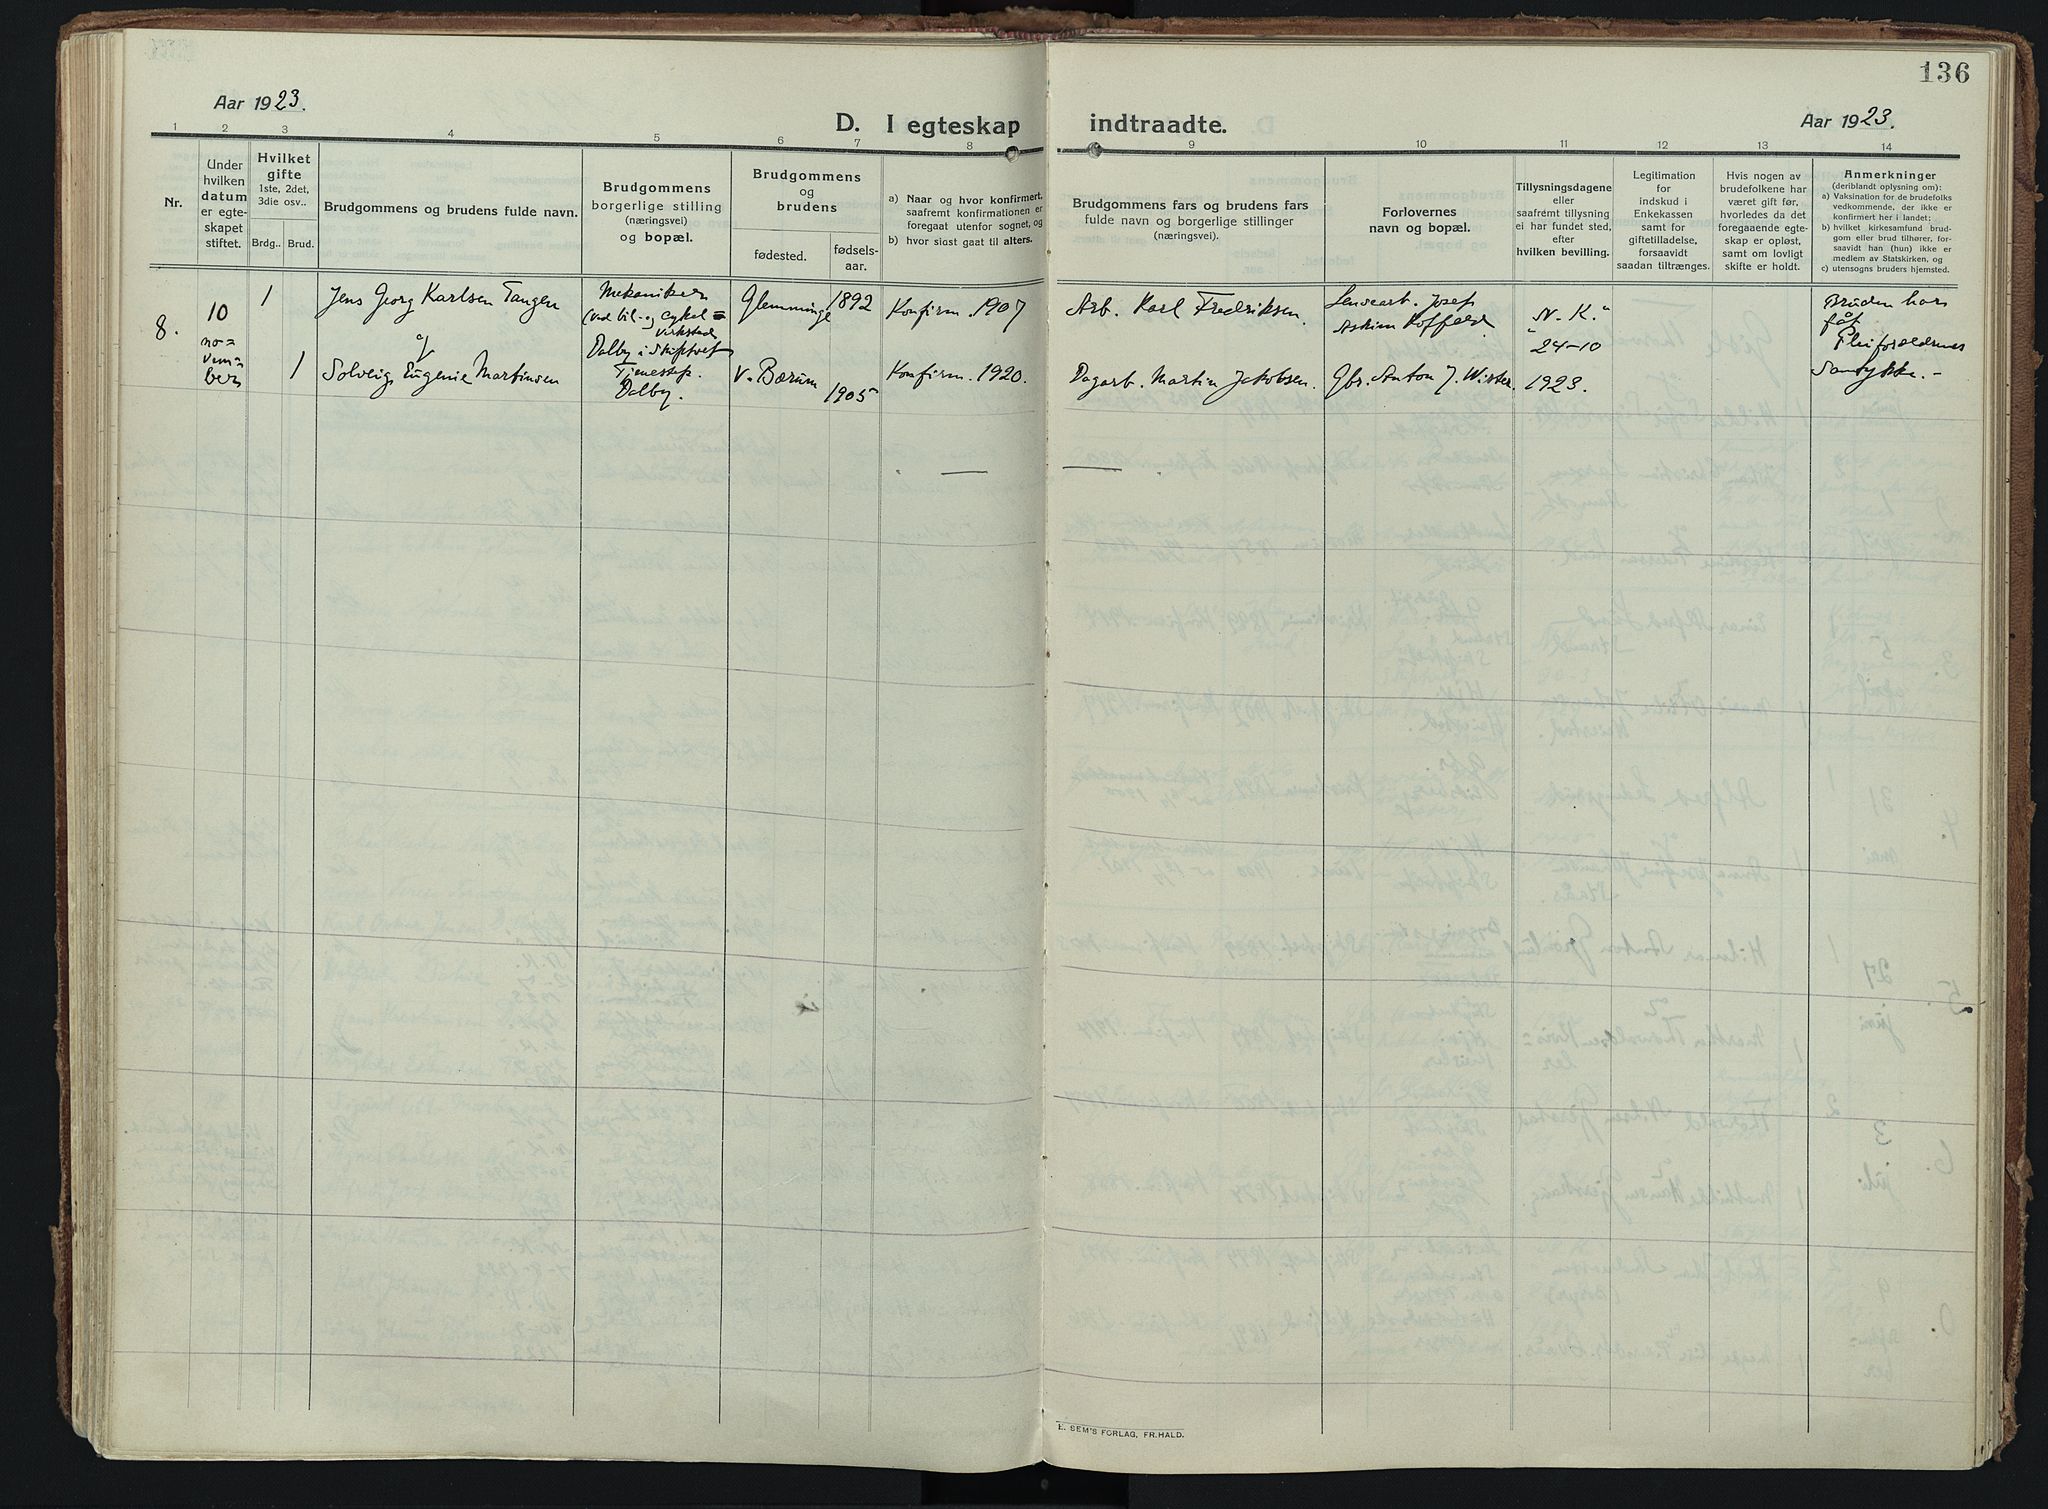 136
Aar 1923.
D. I egteskap indtraadte.
Aar 1923.
1 2 3 4 5 6 7 8 9 10 11 12 13 14
Nr.
Under
hvilken
datum
er egte-
skapet
stiftet.
Hvilket
gifte
1ste, 2det,
3die osv..
Brdg.. Brud.
Brudgommens og brudens fulde navn.
Brudgommens
borgerlige stilling
(næringsvei)
og bopæl.
Brudgommens
og
brudens
fødested.
fødsels-
aar.
a) Naar og hvor konfirmert,
saafremt konfirmationen er
foregaat utenfor sognet, og
b) hvor sidst gaat til alters.
Brudgommens fars og brudens fars
fulde navn og borgerlige stillinger
(næringsvei).
Forlovernes
navn og bopæl.
Tillysningsdagene
eller
saafremt tillysning
ei har fundet sted,
efter
hvilken bevilling.
Legitimation
for
indskud i
Enkekassen
samt for
giftetilladelse,
forsaavidt
saadan tiltrænges.
Hvis nogen av
brudefolkene har
været gift før,
hvorledes da det
foregaaende egte-
skap er opløst,
samt om lovligt
skifte er holdt.
Anmerkninger
(deriblandt oplysning om):
a) Vaksination for de brudefolks
vedkommende, der ikke er
konfirmert her i landet;
b) hvilket kirkesamfund brud-
gom eller brud tilhører, for-
saavidt han (hun) ikke er
medlem av Statskirken, og
c) utensogns bruders hjemsted.
8.
10
no=
vem=
ber
1
Jens Georg Karlsen Tangen
og
1
Solveig Eugenie Martinsen
Mekaniker
(ved bil- og cykel=
virkstad,
Dalby i Skiptvet
Tjenestep.
Dalby.
Glemminge 1892
V. Bærum 1905
Konfirm. 1907
Konfirm. 1920.
Arb. Karl Fredriksen.
Dagarb. Martin Jakobsen.
Josef
Askim
Gbr. Anton J. Wister.
"N. K."
24-10
1923.
Bruden har
fåt
Pleiforældrenes
Samtykke.-
E. SEM'S FORLAG, FR.HALD.